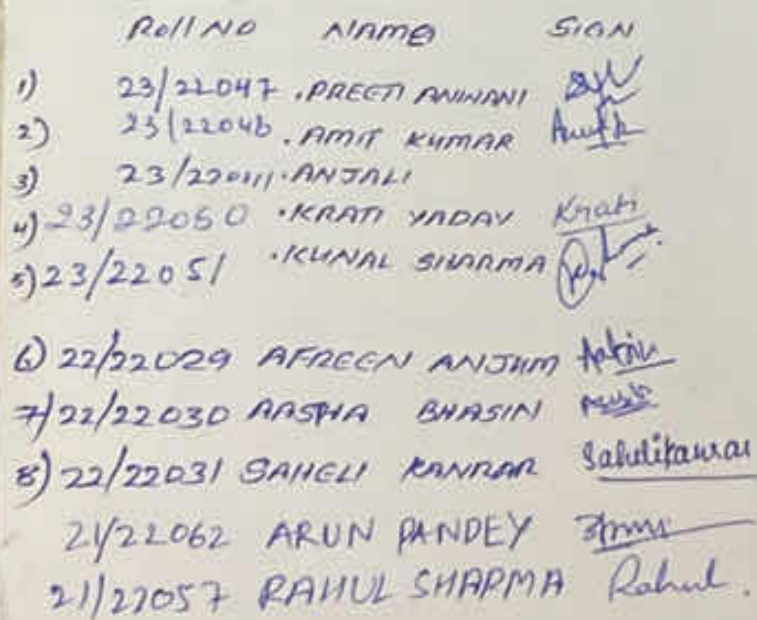 Roll NO NAME SIGN
1) 23/22047 . PREETI ANWANI
2) 23/22046 . AMIT KUMAR
3) 23/22011 . ANJALI
4) 23/22050 . KRATI YADAV Krati
5) 23/22051 . KUNAL SHARMA
6) 22/22029 AFREEN ANJUM
7) 22/22030 AASTHA BHASIN
8) 22/22031 SAHELI KANRAR Sahelikanrar
21/22062 ARUN PANDEY
21/22057 RAHUL SHARMA Rahul.